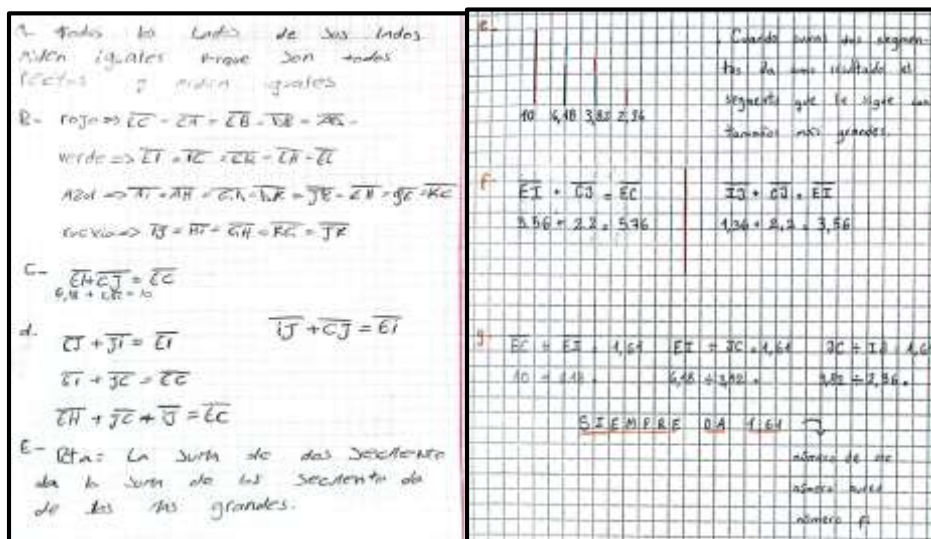 todos los lados de sus lados
miden iguales porque son todos
rectos y miden iguales
B- rojo => EC = CA = EB =
verde => EI = =
Azul => AI = AH =
=> IJ = HI = GH =
C- EH + CJ = EC
d- EJ + JI = EI
IJ + CJ = EI
EI + JC = EC
EH + JC + IJ = EC
E- Rta= La suma de dos
da la suma de los
de los mas grandes.
e-
10 6,18 3,82 2,36
Cuando sumas dos segmen-
tos da como resultado el
segmento que le sigue con
tamaños más grandes.
f-
EI + CJ = EC
3,56 + 2,2 = 5,76
IJ + CJ = EI
1,36 + 2,2 = 3,56
g-
EC ÷ EI = 1,61
10 ÷ 6,18 =
EI ÷ JC = 1,61
6,18 ÷ 3,82 =
JC ÷ IJ = 1,61
3,82 ÷ 2,36 =
SIEMPRE DA 1,61
número de oro
número aureo
número